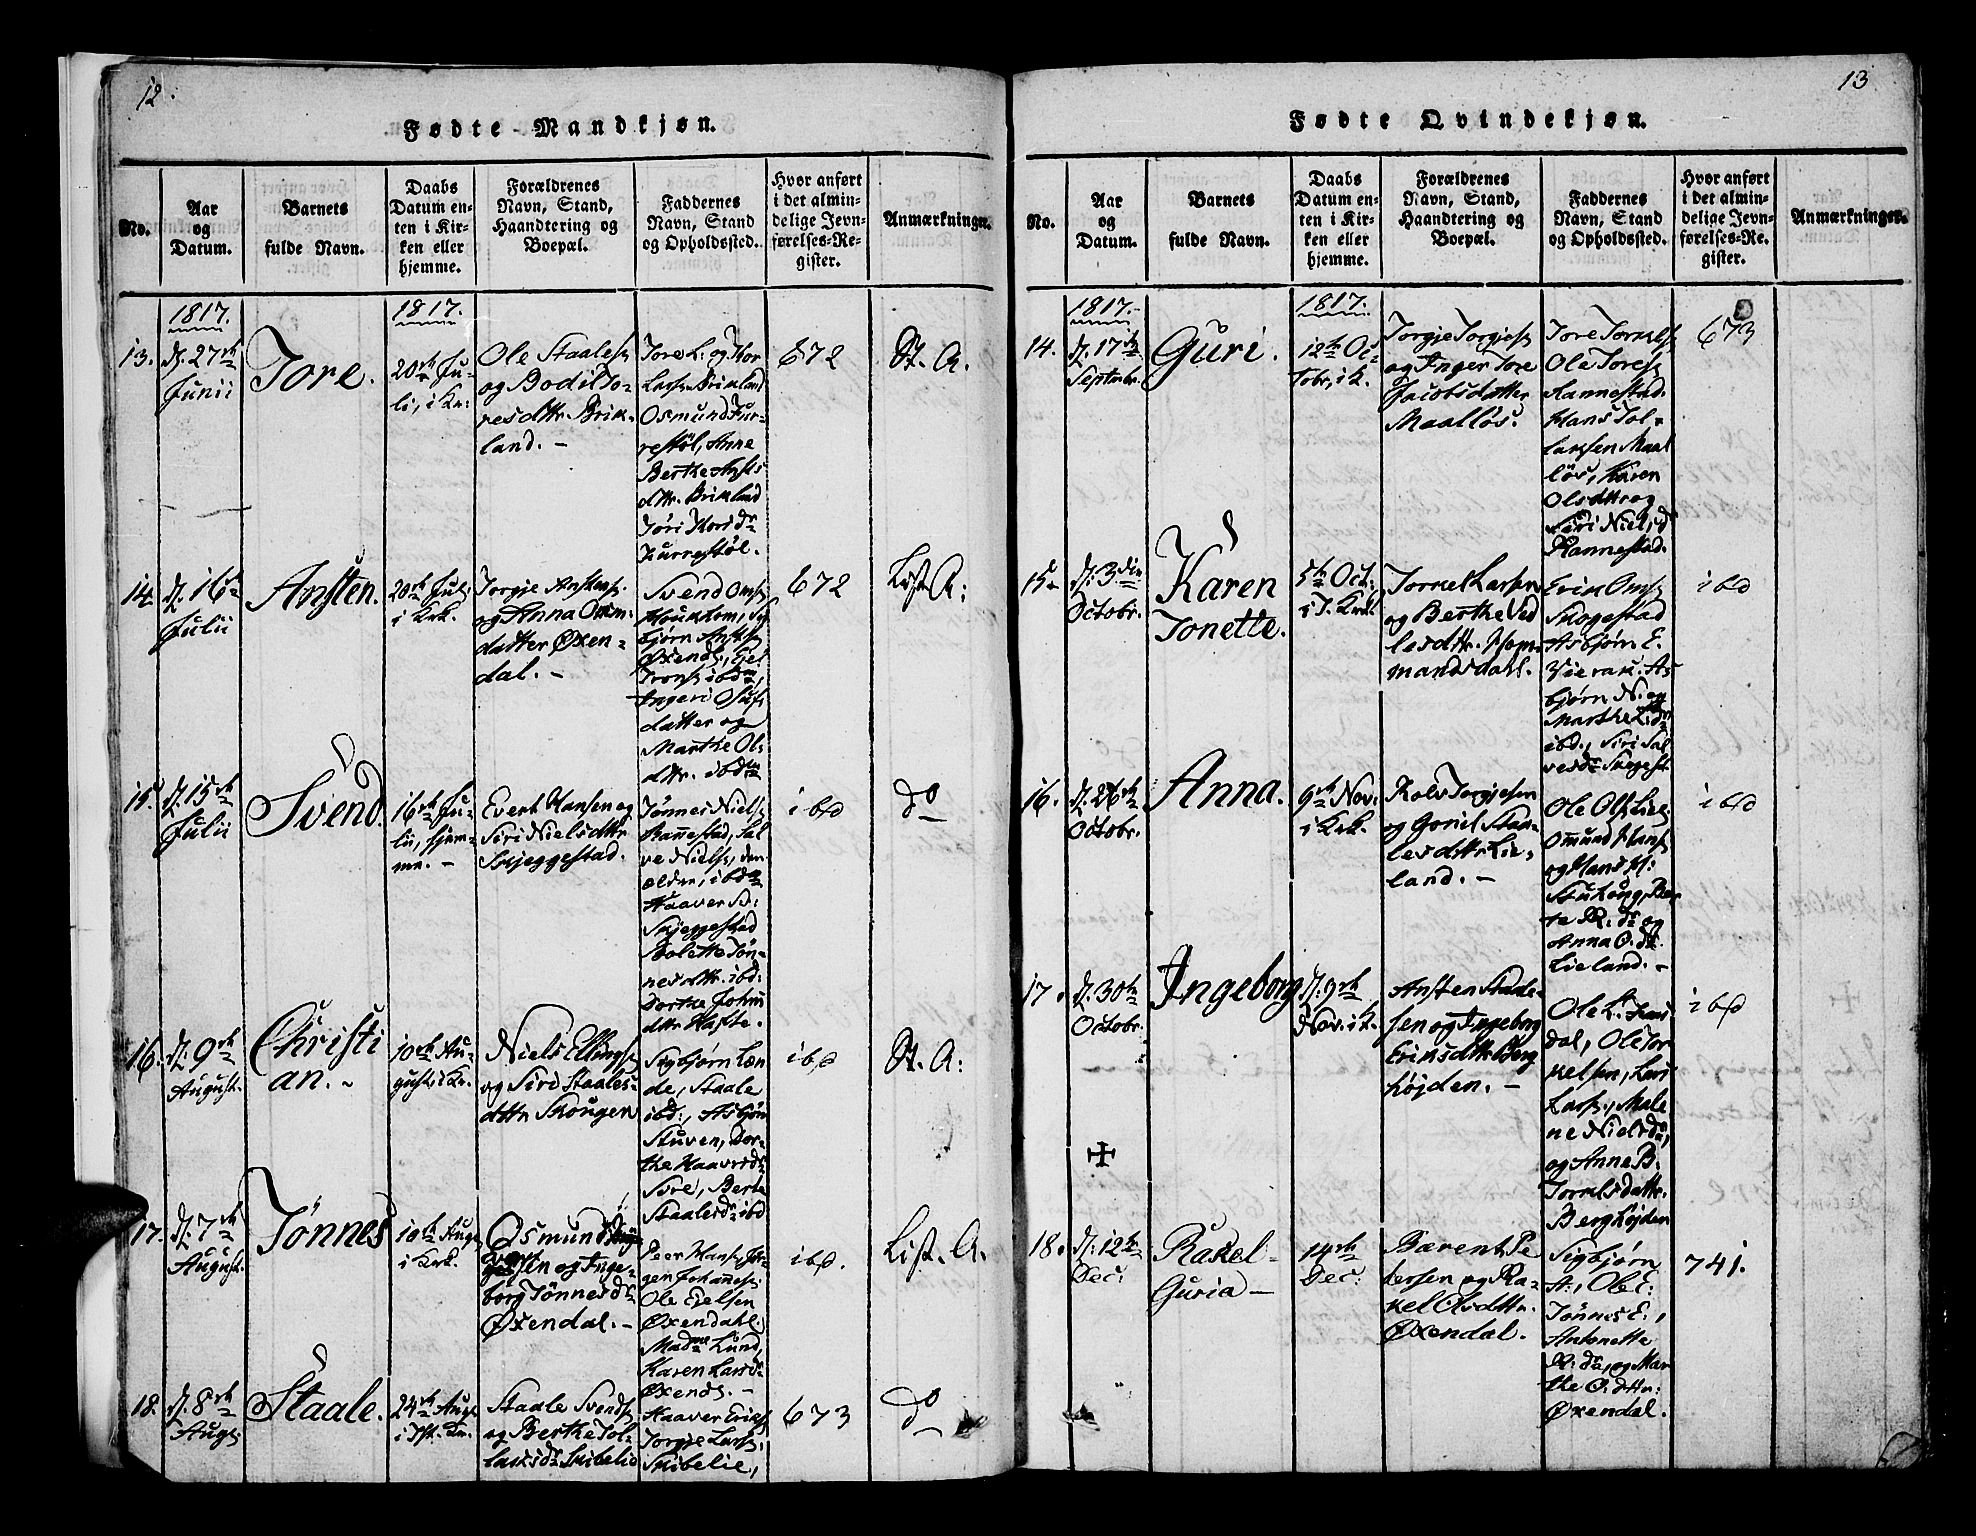 12.
Fødte Mandkjøn.
No.
Aar
og
Datum.
Barnets
fulde Navn.
Daabs
Datum en-
ten i Kir-
ken eller
hjemme.
Forældrenes
Navn, Stand,
Haandtering og
Boepæl.
Faddernes
Navn, Stand
og Opholdssted.
Hvor anført
i det almin-
delige Jevn-
førelses-Re-
gister.
Anmærkninger.
1817.
1817.
13.
d. 27de
Junii
Tore.
20de Ju-
li, i Kr:
Ole Staales.
og Bodil To-
resdttr. Brik-
land. -
Tore L: og Thor
Larsen Brikland
Osmund Fur-
restøl, Anne
Berthe Ansts
dttr. Brikland
Jöri Thors dr
Furrestøl.
672
St. A.
14.
d. 16de
Julii
Ansten.
20de Jul:
i Krk.
Torgje Anstens.
og Anna Osm.
datter Øxen-
dal. -
Svend Oms.
bjørn Anstes.
Øxend:, Ejel
Trons. ibdm,
Ingeri Olufs
datter og
Marthe Ol:
dttr. ibdm
672
List. A:
15.
d. 15de
Julii
Svend.
16de Ju-
li, hjem-
me. -
Evert Hansen og
Siri Nielsdttr.
Skjeggestad.
Tønnes Niels.
Rannestad, Sal
ve Niels., den
ældre, ibdm
Haaver Sv:
Skjeggestad
Bolette Tön-
nesdttr. ibd:
Dorthe Johann
dttr. Hafte.
ibd
do
16.
d. 9de
August.
Christi
an. -
10de Au-
gust i Kr.
Niels Ellings.
og Siri Staales-
dttr Skougen
Sigbjørn Læn
de, Staale
ibd:, Asbjørn
Stuven, Dor-
the Haavrsd:
Svre, Berte
Staalesd: ibd
ibd
St. A:
17.
d. 7de
August.
Tönnes
10de Aug.
i Krk.
Osmund
sen og Inge-
borg Tönnesd:
Øxendal. -
Peer Hans., Jør-
gen Johannes.
Ole Ejelsen
Øxendahl.
Madme Lund,
Karen Larsd:
Øxend:. -
ibd.
List. A.
18.
d. 8de
Aug:
Staale.
24de Aug.
Staale Svends.
og Berthe Tol-
laksd: Skibelid
Haaver Eriks.
Torgje Lars.
Skibelie,
673
do
13
Fødte Qvindekjøn.
No.
Aar
og
Datum.
Barnets
fulde Navn.
Daabs
Datum en-
ten i Kir-
ken eller
hjemme.
Forældrenes
Navn, Stand,
Haandtering og
Boepæl.
Faddernes
Navn, Stand
og Opholdssted.
Hvor anført
i det almin-
delige Jevn-
førelses-Re.
gister.
Anmærkninger.
1817.
1817.
14.
d. 17de
Septmbr.
Guri.
12te Oc-
tobr, i K.
Torgje Torgjes.
og Inger Tore
Jacobsdatter
Maalløs.
Tore Torkels.
Ole Tores.
Rannestad.
Hans Tol-
laksen Maal
løs, Karen
Olsdttr og
Siri Niels, d
Rannestad.
673
15.
d. 3die
Octobr.
Karen
Tonette.
5te Oct:
Torkel Larsen
og Berthe Ved
lesdttr. Hom-
mandsdahl.
Erik Oms.
Skogestad
Asbjørn E.
bjørn N: og
Marthe L: dr
ibd., Siri Sal
vesdr Skogest.
ibd
16.
d. 26de
Octobr.
Anna.
9de Nov:
i Krk.
Rolv Torgjesen
og Gonil Staa-
lesdttr Lie-
land. -
Ole Ols. Liel.
Ommund Hans.
og Hans H:
te R: dr og
Anna O: dr.
Lieland. -
ibd
17.
d. 30te
Octobr.
Ingeborg
d. 9de
Nov. i K.
Ansten Staale-
sen og Ingeborg
Eriksdttr. Berg
höjden. -
Ole K.
dal, Ole Tor
kelsen, Lars
Lars:, Male
ne Nielsdr,
og Anne B.
Torkelsdattr.
Berghöjden
ibd
18.
d. 12te
Dec:
Rakel-
Guria -
14de
Dec:
Bærent Pe
tersen og Ra-
kel Olsdttr.
Øxendal.
Sigbjørn
A:, Ole E:
Tönnes E:,
Antonette
R: dr, og Mar
the O. dttr:
Øxendal.
741.